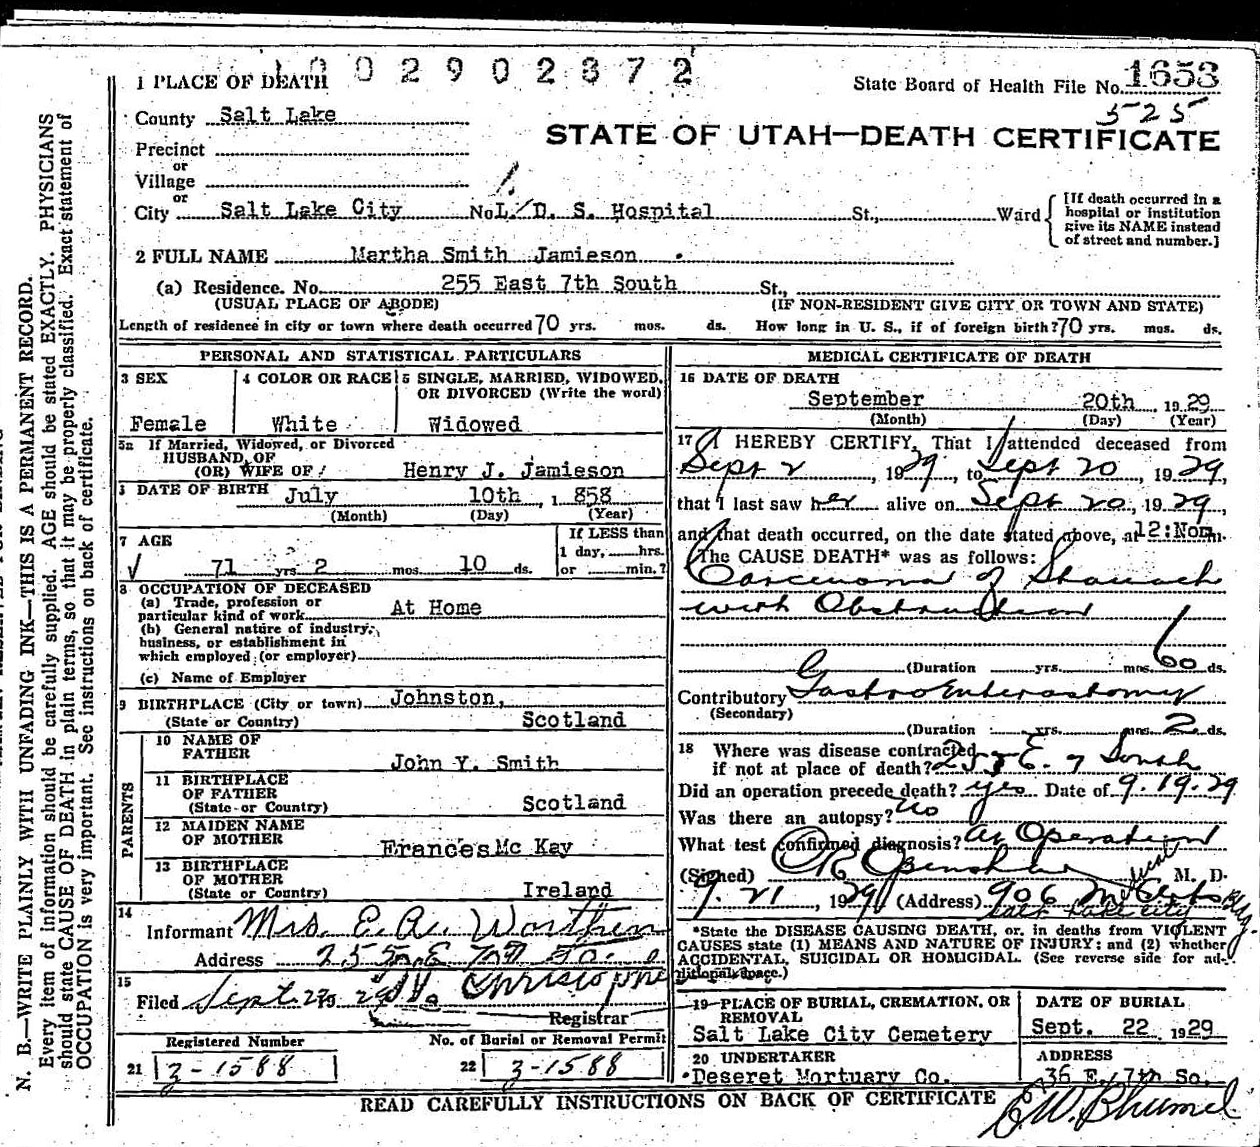 1 0 0 2 9 0 2 3 7 2
1 PLACE OF DEATH
State Board of Health File No. 1653
525
County Salt Lake
STATE OF UTAH—DEATH CERTIFICATE
Precinct
or
Village
or
City Salt Lake City No. L. D. S. Hospital St., Ward
[If death occurred in a
hospital or institution
give its NAME instead
of street and number.]
2 FULL NAME Martha Smith Jamieson
(a) Residence. No. 255 East 7th South St.,
(USUAL PLACE OF ABODE) (IF NON-RESIDENT GIVE CITY OR TOWN AND STATE)
Length of residence in city or town where death occurred 70 yrs. mos. ds. How long in U. S., if of foreign birth? 70 yrs. mos. ds.
PERSONAL AND STATISTICAL PARTICULARS
3 SEX
Female
4 COLOR OR RACE
White
5 SINGLE, MARRIED, WIDOWED,
OR DIVORCED (Write the word)
Widowed
5a If Married, Widowed, or Divorced
HUSBAND OF
(OR) WIFE OF Henry J. Jamieson
DATE OF BIRTH July 10th, 1 858
(Month) (Day) (Year)
7 AGE
71 yrs 2 mos. 10 ds.
If LESS than
1 day, hrs.
or min.?
8 OCCUPATION OF DECEASED
(a) Trade, profession or
particular kind of work At Home
(b) General nature of industry,
business, or establishment in
which employed (or employer)
(c) Name of Employer
9 BIRTHPLACE (City or town) Johnston,
(State or Country) Scotland
PARENTS
10 NAME OF
FATHER John Y. Smith
11 BIRTHPLACE
OF FATHER
(State or Country) Scotland
12 MAIDEN NAME
OF MOTHER Frances Mc Kay
13 BIRTHPLACE
OF MOTHER
(State or Country) Ireland
14
Informant Mrs. E. A. Worthen
Address 255 E 7th So.
15
Filed Sept. 22 29
Registrar
Registered Number
21 3-1588
No. of Burial or Removal Permit
22 3-1588
MEDICAL CERTIFICATE OF DEATH
16 DATE OF DEATH
September 20th 1929
(Month) (Day) (Year)
17 I HEREBY CERTIFY, That I attended deceased from
Sept 2, 1929, to Sept 20, 1929,
that I last saw her alive on Sept 20, 1929,
and that death occurred, on the date stated above, at 12:Noon m.
The CAUSE DEATH* was as follows:
Carcinoma of Stomach
with Obstruction
(Duration yrs. mos. 60 ds.
Contributory Gastro Enterostomy
(Secondary)
(Duration yrs. mos. 2 ds.
18 Where was disease contracted
if not at place of death? 255 E. 7 South
Did an operation precede death? yes Date of 9.19.29
Was there an autopsy? no
What test confirmed diagnosis? at Operation
(Signed) M. D.
9.21, 1929 (Address) 906 Medical Arts Bldg.
Salt Lake City
*State the DISEASE CAUSING DEATH, or, in deaths from VIOLENT
CAUSES state (1) MEANS AND NATURE OF INJURY; and (2) whether
ACCIDENTAL, SUICIDAL OR HOMICIDAL. (See reverse side for ad-
ditional space.)
19 PLACE OF BURIAL, CREMATION, OR
REMOVAL
Salt Lake City Cemetery
DATE OF BURIAL
Sept. 22 1929
20 UNDERTAKER
Deseret Mortuary Co.
ADDRESS
36 E. 7th So.
READ CAREFULLY INSTRUCTIONS ON BACK OF CERTIFICATE
N. B.—WRITE PLAINLY WITH UNFADING INK—THIS IS A PERMANENT RECORD.
Every item of information should be carefully supplied. AGE should be stated EXACTLY. PHYSICIANS
should state CAUSE OF DEATH in plain terms, so that it may be properly classified. Exact statement of
OCCUPATION is very important. See instructions on back of certificate.